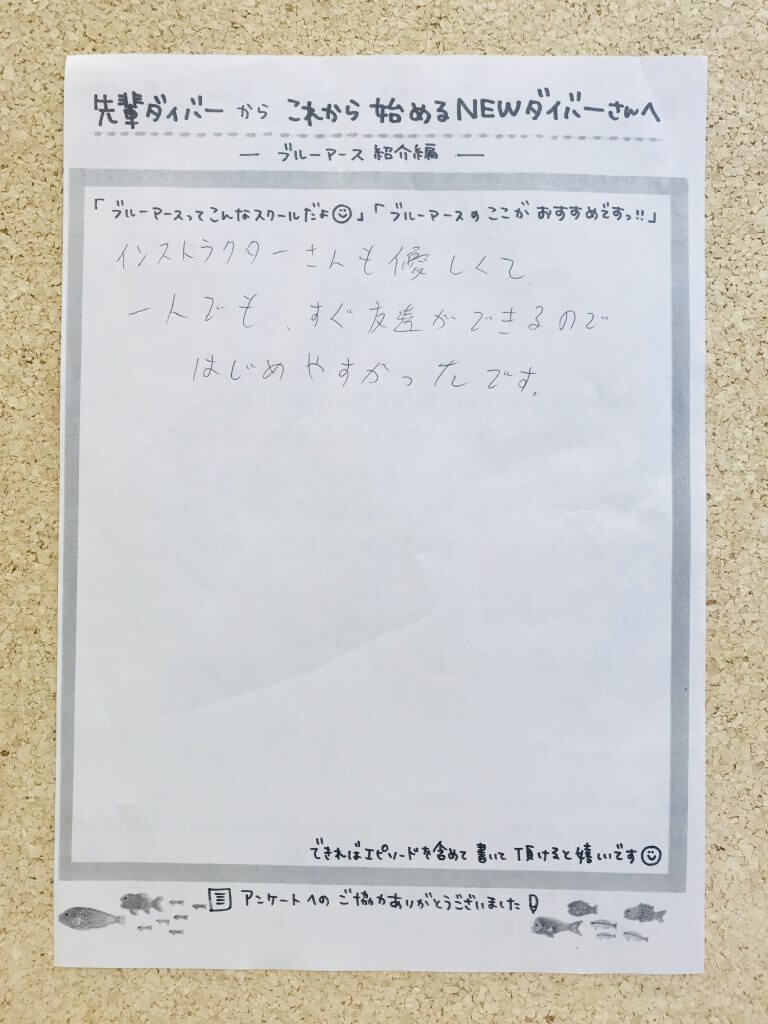 先輩ダイバーから これから 始めるNEWダイバーさんへ
― ブルーアース 紹介編 ―
「ブルーアースってこんなスクールだよ☺」「ブルーアースのここがおすすめですっ!!」
インストラクターさんも優しくて
一人でも、すぐ友達ができるので
はじめやすかったです。
できればエピソードを含めて書いて頂けると嬉しいです☺
アンケートへのご協力ありがとうございました